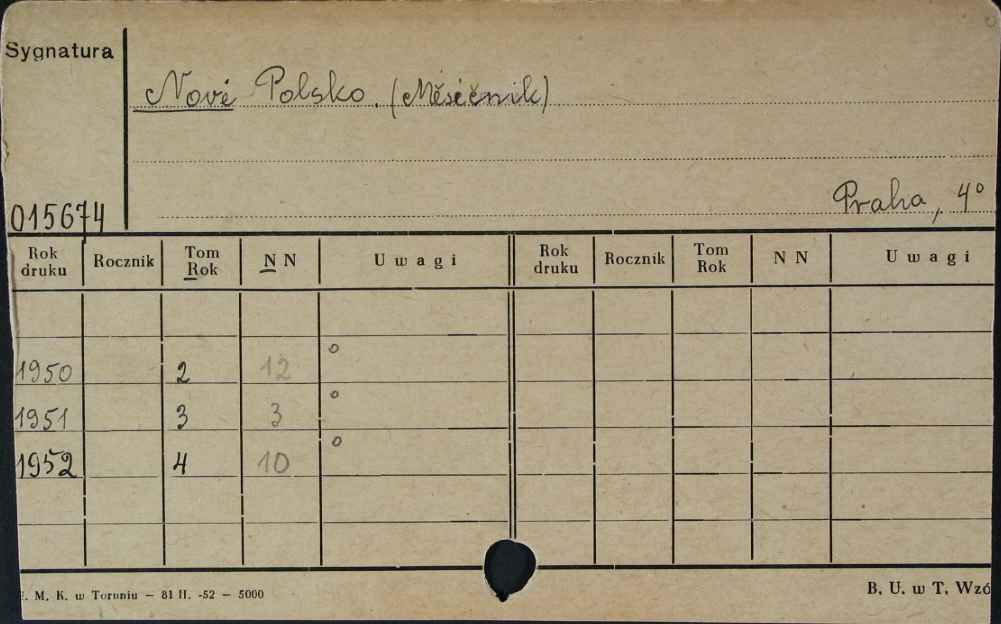 Sygnatura
Nové Polsko. (Měsíčnik)
Praha, 4°
015674
Rok druku Rocznik Tom Rok N N Uwagi Rok druku Rocznik Tom Rok N N Uwagi
1950 2 12 °
1951 3 3 °
1952 4 10 °
. M. K. w Toruniu — 81 II. -52 — 5000
B. U. w T. Wzó